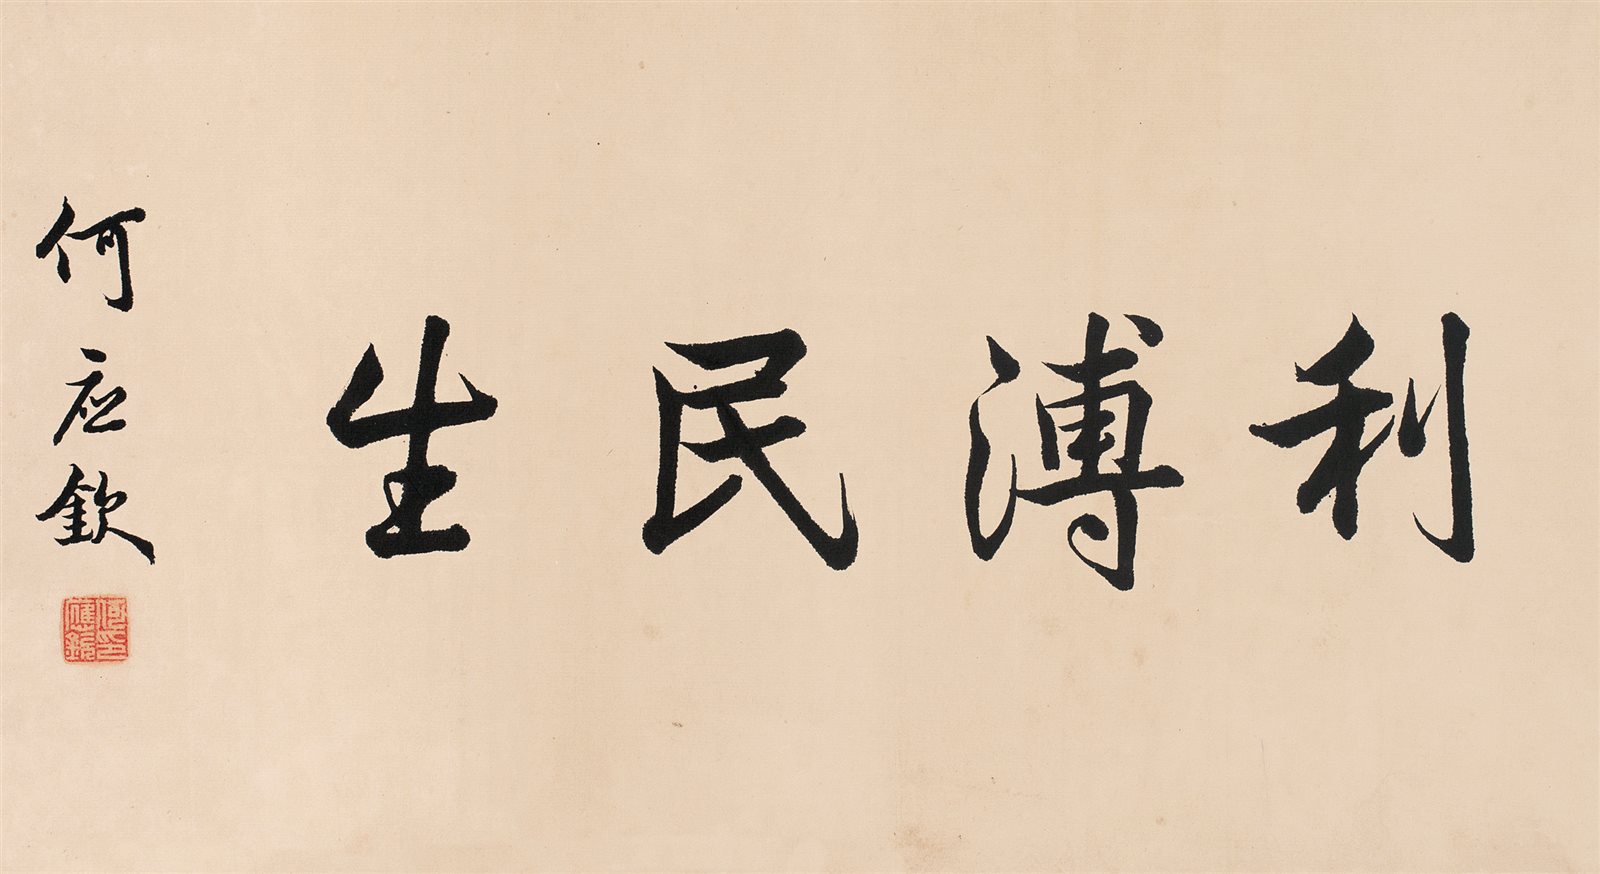 利溥民生
何应欽
何應欽印